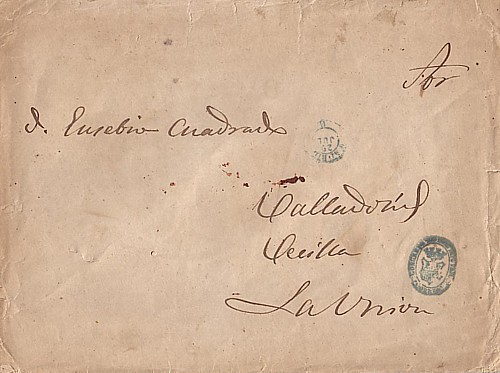 Sor
D. Eusebio Cuadrado
Valladolid
Cecilla
La Union